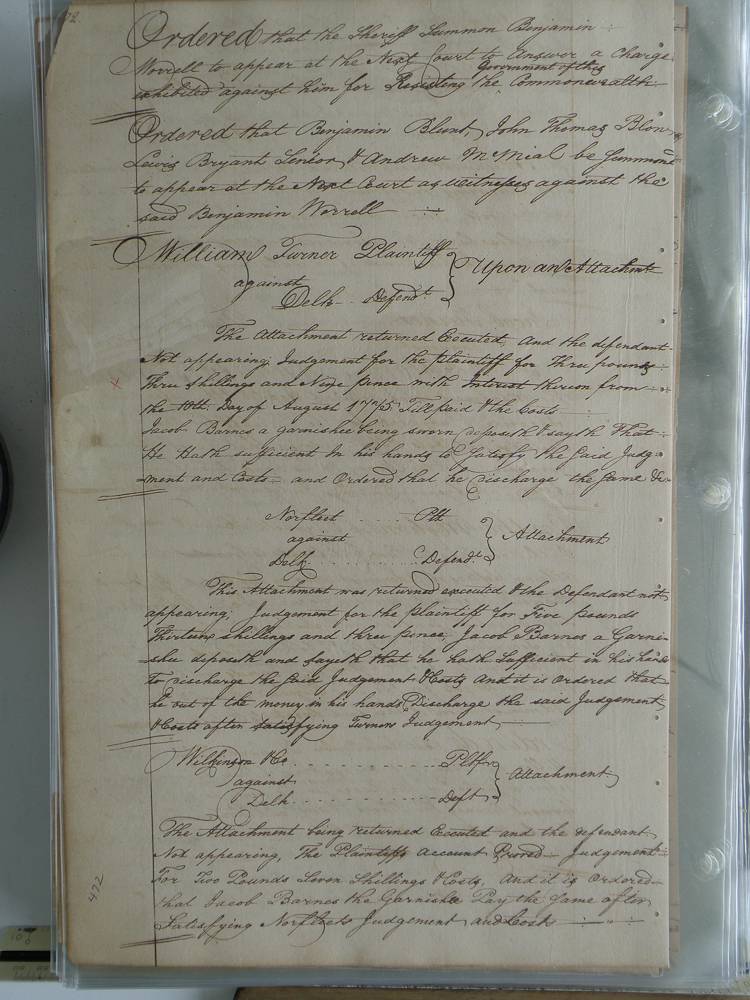 Ordered that the Sheriff Summon Benjamin
Worrell to appear at the Next Court to Answer a Charge
Government of this
exhibited against him for Resisting the Commonwealth
Ordered that Benjamin Blunt, John Thomas Blow
Lewis Bryant Senior & Andrew McMial be Summond
to appear at the Next Court as witnesses against the
said Benjamin Worrell
William Turner Plaintiff
against
Delk Defendt
Upon an Attachmt
The Attachment returned Executed, And the defendant
Not appearing; Judgement for the plaintiff for Three pounds
Three Shillings and Nine pence with Interest thereon from
the 10th Day of August 1775. Till paid & the Costs
Jacob Barnes a garnishee being sworn deposeth & sayth That
He Hath sufficient In his hands to Satisfy the Said Judg
ment and Costs and Ordered that he discharge the Same &c
Norfleet Plt
against
Delk Defendt
Attachment
This Attachment was returned executed & the Defendant not
appearing; Judgement for the plaintiff for Five pounds
Thirteen shillings and three pence; Jacob Barnes a Garni
shee deposeth and sayeth that he hath Sufficient in his hands
To discharge the said Judgement & Costs And it is Ordered that
he out of the money in his hands Discharge the said Judgement
& Costs after satisfying Turners Judgement
Wilkinson & Co Pltf
against
Delk Deft
Attachment
The Attachment being returned Executed and the defendant
Not appearing, The Plaintiffs account Proved Judgement
For Two Pounds Seven Shillings & Costs, And it is Ordered
that Jacob Barnes the Garnishee Pay the same after
Satisfying Norfleets Judgement and Cost
472